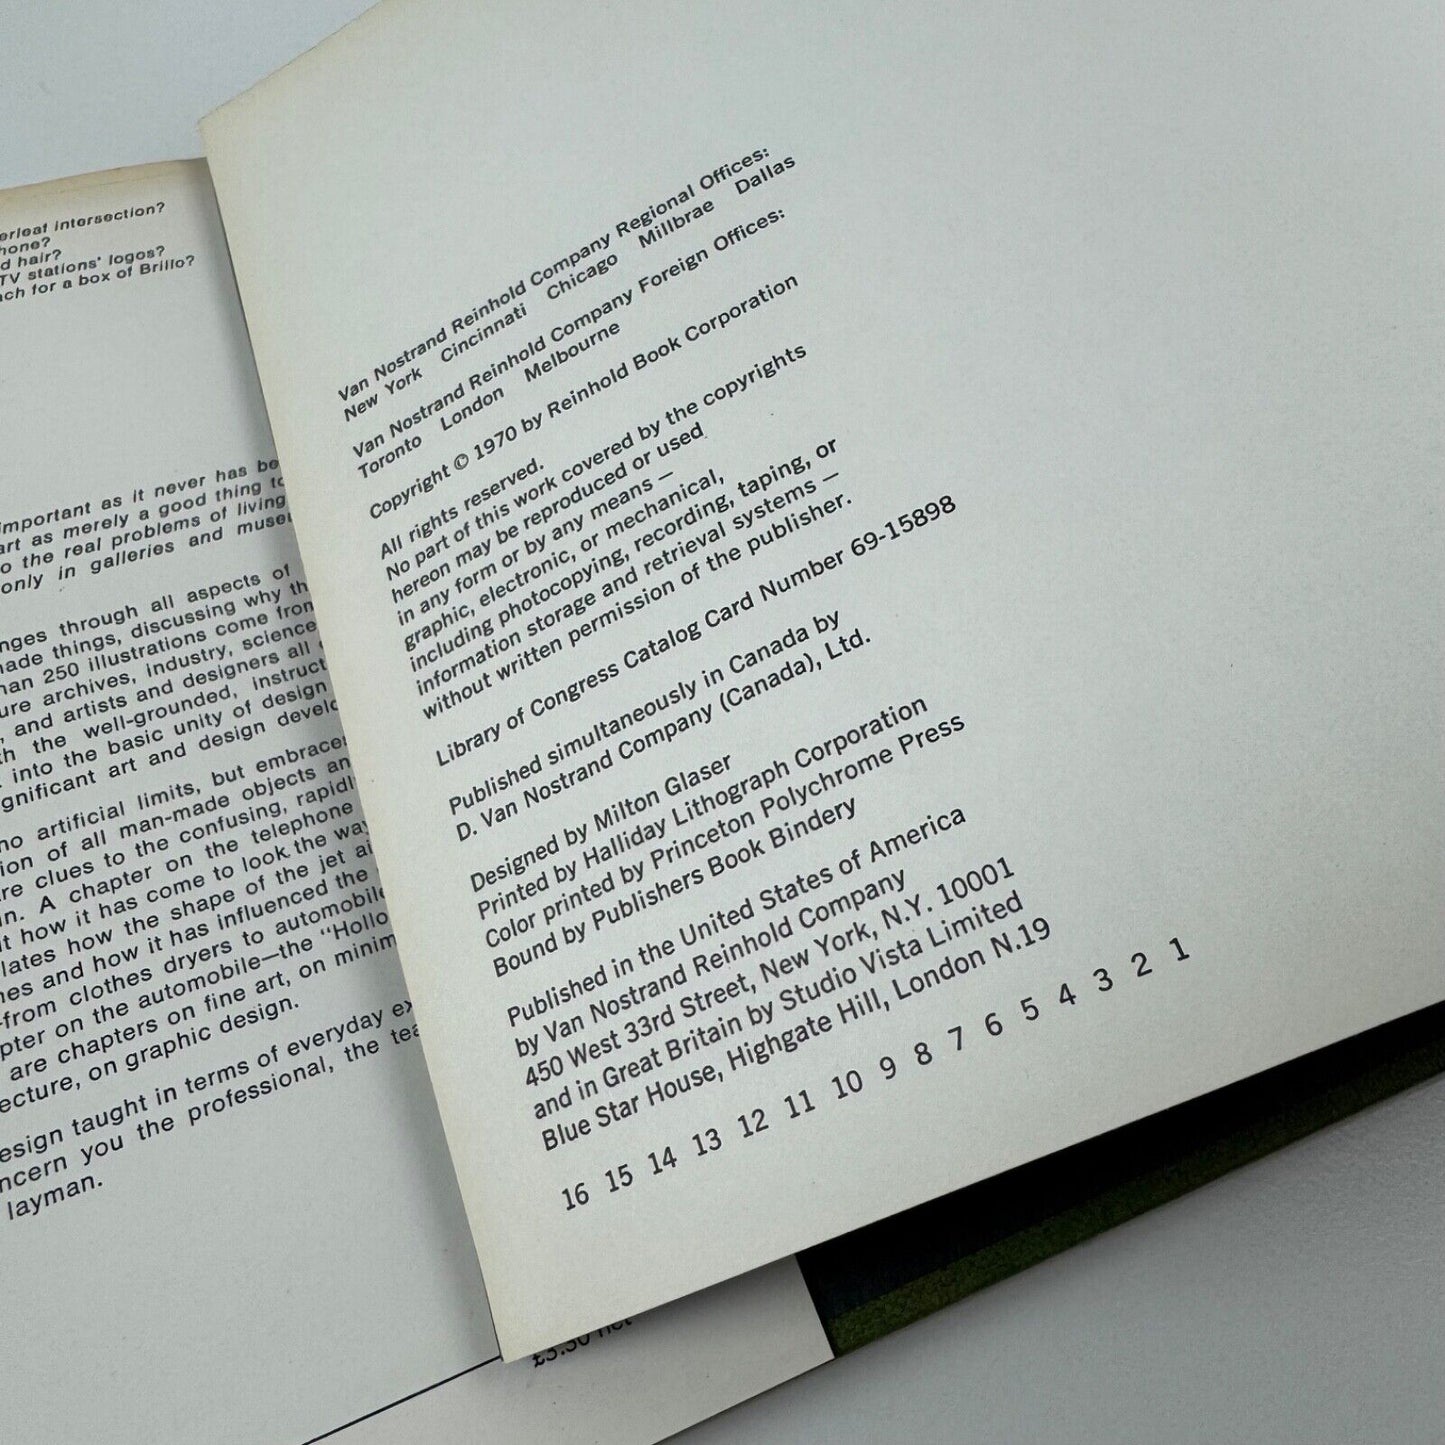 erleaf intersection?
hone?
d hair?
TV stations' logos?
ach for a box of Brillo?
important as it never has be
art as merely a good thing to
o the real problems of living
only in galleries and museu
nges through all aspects of
made things, discussing why th
han 250 illustrations come from
ure archives, industry, science
, and artists and designers all
th the well-grounded, instruct
into the basic unity of design
gnificant art and design develo
no artificial limits, but embraces
ion of all man-made objects an
re clues to the confusing, rapidl
n. A chapter on the telephone
t how it has come to look the way
lates how the shape of the jet ai
nes and how it has influenced the
-from clothes dryers to automobile
pter on the automobile—the "Hollo
are chapters on fine art, on minim
ecture, on graphic design.
esign taught in terms of everyday ex
ncern you the professional, the tea
layman.
Van Nostrand Reinhold Company Regional Offices:
New York Cincinnati Chicago Millbrae Dallas
Van Nostrand Reinhold Company Foreign Offices:
Toronto London Melbourne
Copyright © 1970 by Reinhold Book Corporation
All rights reserved.
No part of this work covered by the copyrights
hereon may be reproduced or used
in any form or by any means —
graphic, electronic, or mechanical,
including photocopying, recording, taping, or
information storage and retrieval systems —
without written permission of the publisher.
Library of Congress Catalog Card Number 69-15898
Published simultaneously in Canada by
D. Van Nostrand Company (Canada), Ltd.
Designed by Milton Glaser
Printed by Halliday Lithograph Corporation
Color printed by Princeton Polychrome Press
Bound by Publishers Book Bindery
Published in the United States of America
by Van Nostrand Reinhold Company
450 West 33rd Street, New York, N.Y. 10001
and in Great Britain by Studio Vista Limited
Blue Star House, Highgate Hill, London N.19
16 15 14 13 12 11 10 9 8 7 6 5 4 3 2 1
£3.50 net